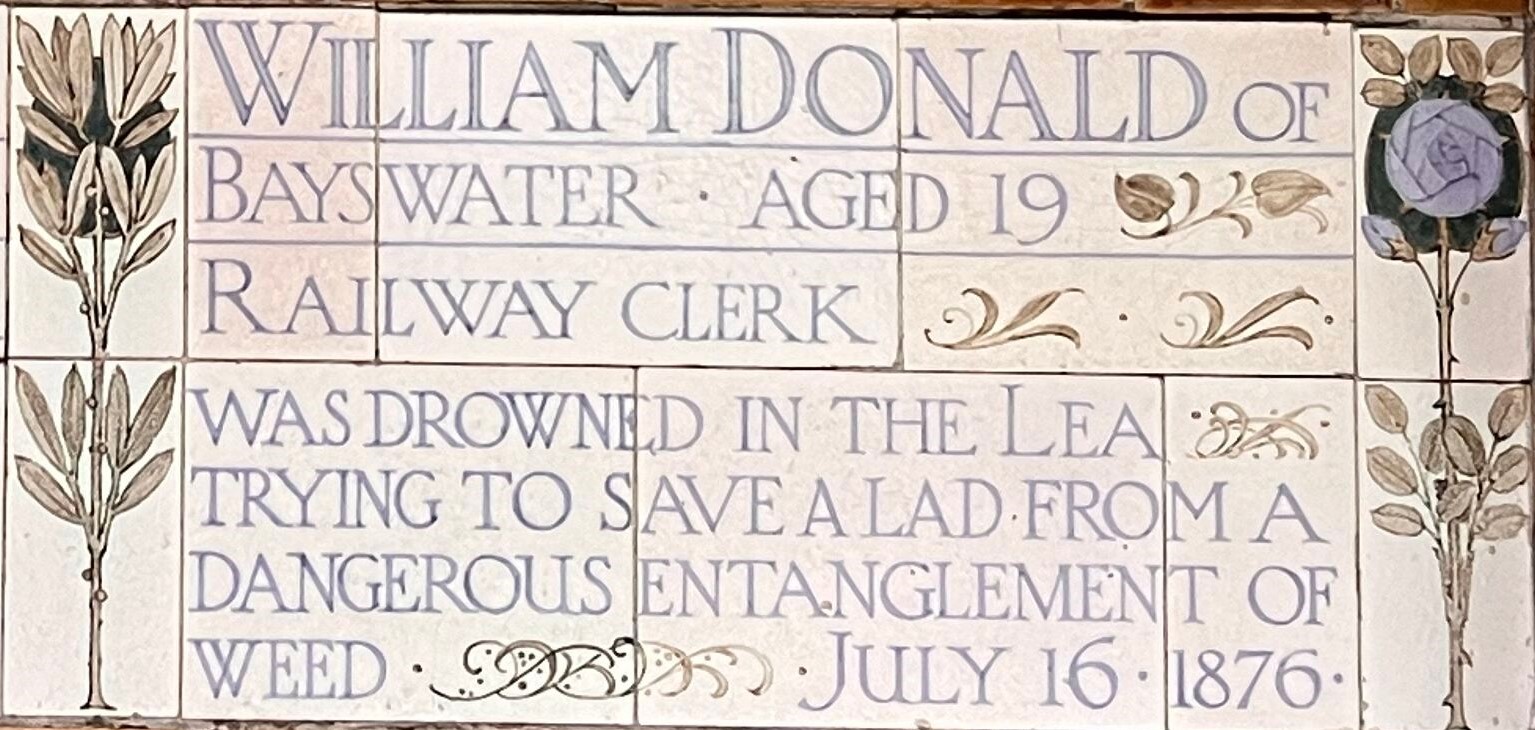 WILLIAM DONALD OF
BAYSWATER · AGED 19
RAILWAY CLERK
WAS DROWNED IN THE LEA
TRYING TO SAVE A LAD FROM A
DANGEROUS ENTANGLEMENT OF
WEED · · JULY 16 · 1876 ·